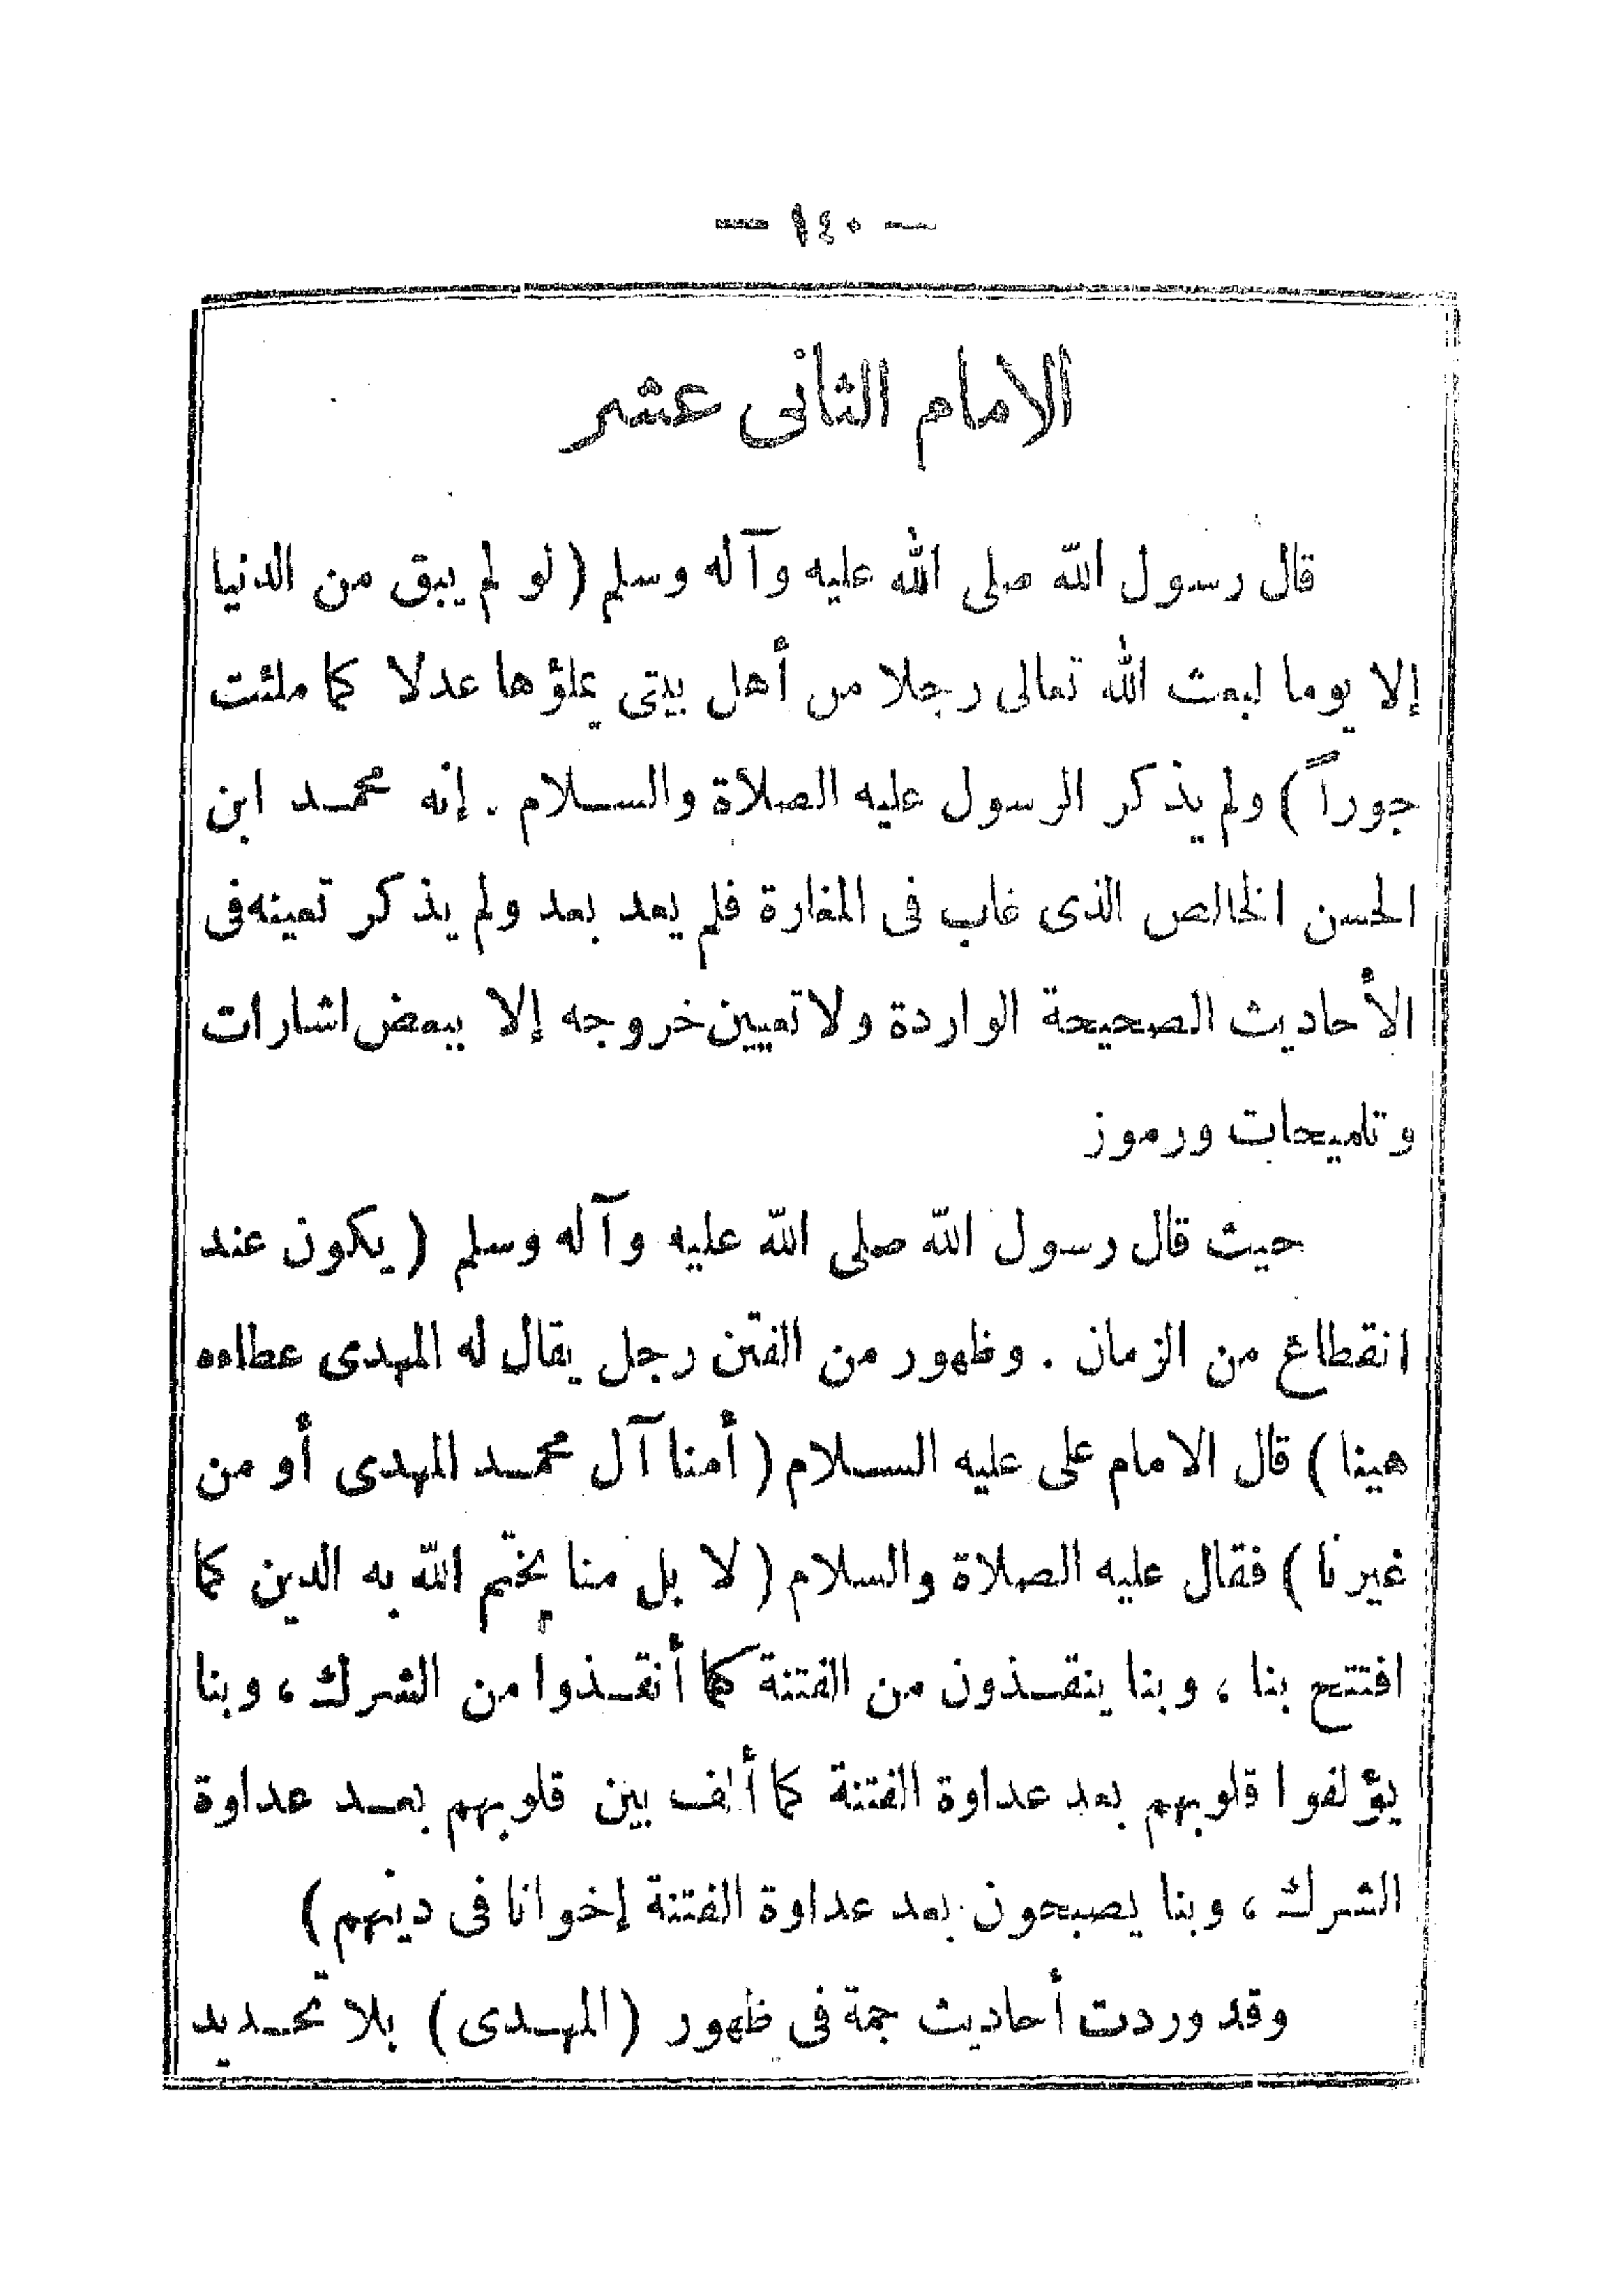 — ١٤٠ —
الامام الثانى عشر
قال رسول الله صلى الله عليه وآله وسلم ( لو لم يبق من الدنيا
إلا يوما لبعث الله تعالى رجلا من أهل بيتى يملؤها عدلا كما ملئت
جوراً ) ولم يذكر الرسول عليه الصلاة والسلام . إنه محمد ابن
الحسن الخالص الذى غاب فى المغارة فلم يعد بعد ولم يذكر تعينه فى
الأحاديث الصحيحة الواردة ولا تعيين خروجه إلا ببعض اشارات
وتلميحات ورموز
حيث قال رسول الله صلى الله عليه وآله وسلم ( يكون عند
انقطاع من الزمان . وظهور من الفتن رجل يقال له المهدى عطاءه
هينا ) قال الامام على عليه السلام ( أمنا آل محمد المهدى أو من
غيرنا ) فقال عليه الصلاة والسلام ( لا بل منا يختم الله به الدين كما
افتتح بنا ، وبنا ينقذون من الفتنة كما أنقذوا من الشرك ، وبنا
يؤلفوا قلوبهم بعد عداوة الفتنة كما ألف بين قلوبهم بعد عداوة
الشرك ، وبنا يصبحون بعد عداوة الفتنة إخوانا فى دينهم )
وقد وردت أحاديث جمة فى ظهور ( المهدى ) بلا تحديد